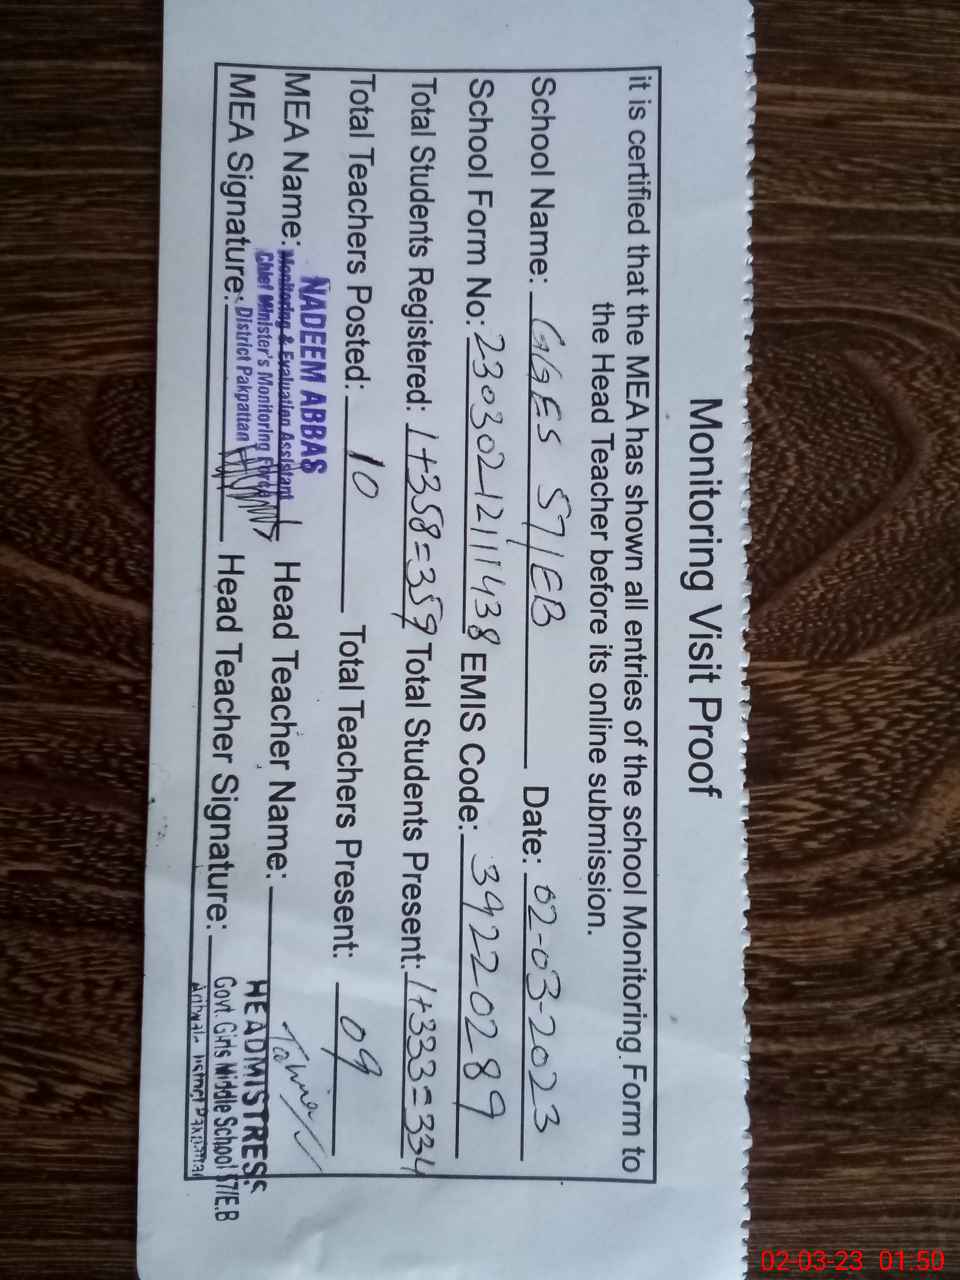 Monitoring Visit Proof
it is certified that the MEA has shown all entries of the school Monitoring Form to
the Head Teacher before its online submission.
School Name: GGES 57/EB Date: 02-03-2023
School Form No: 230302121111438 EMIS Code: 39220289
Total Students Registered: 1+358=359 Total Students Present: 1+333=334
Total Teachers Posted: 10 Total Teachers Present: 09
NADEEM ABBAS
MEA Name: Monitoring & Evaluation Assistant Head Teacher Name:
Chief Minister's Monitoring Force
District Pakpattan
MEA Signature: Head Teacher Signature:
HEADMISTRESS
Govt. Girls Middle School 57/E.B
Arifwala District Pakpattan
02-03-23 01:50